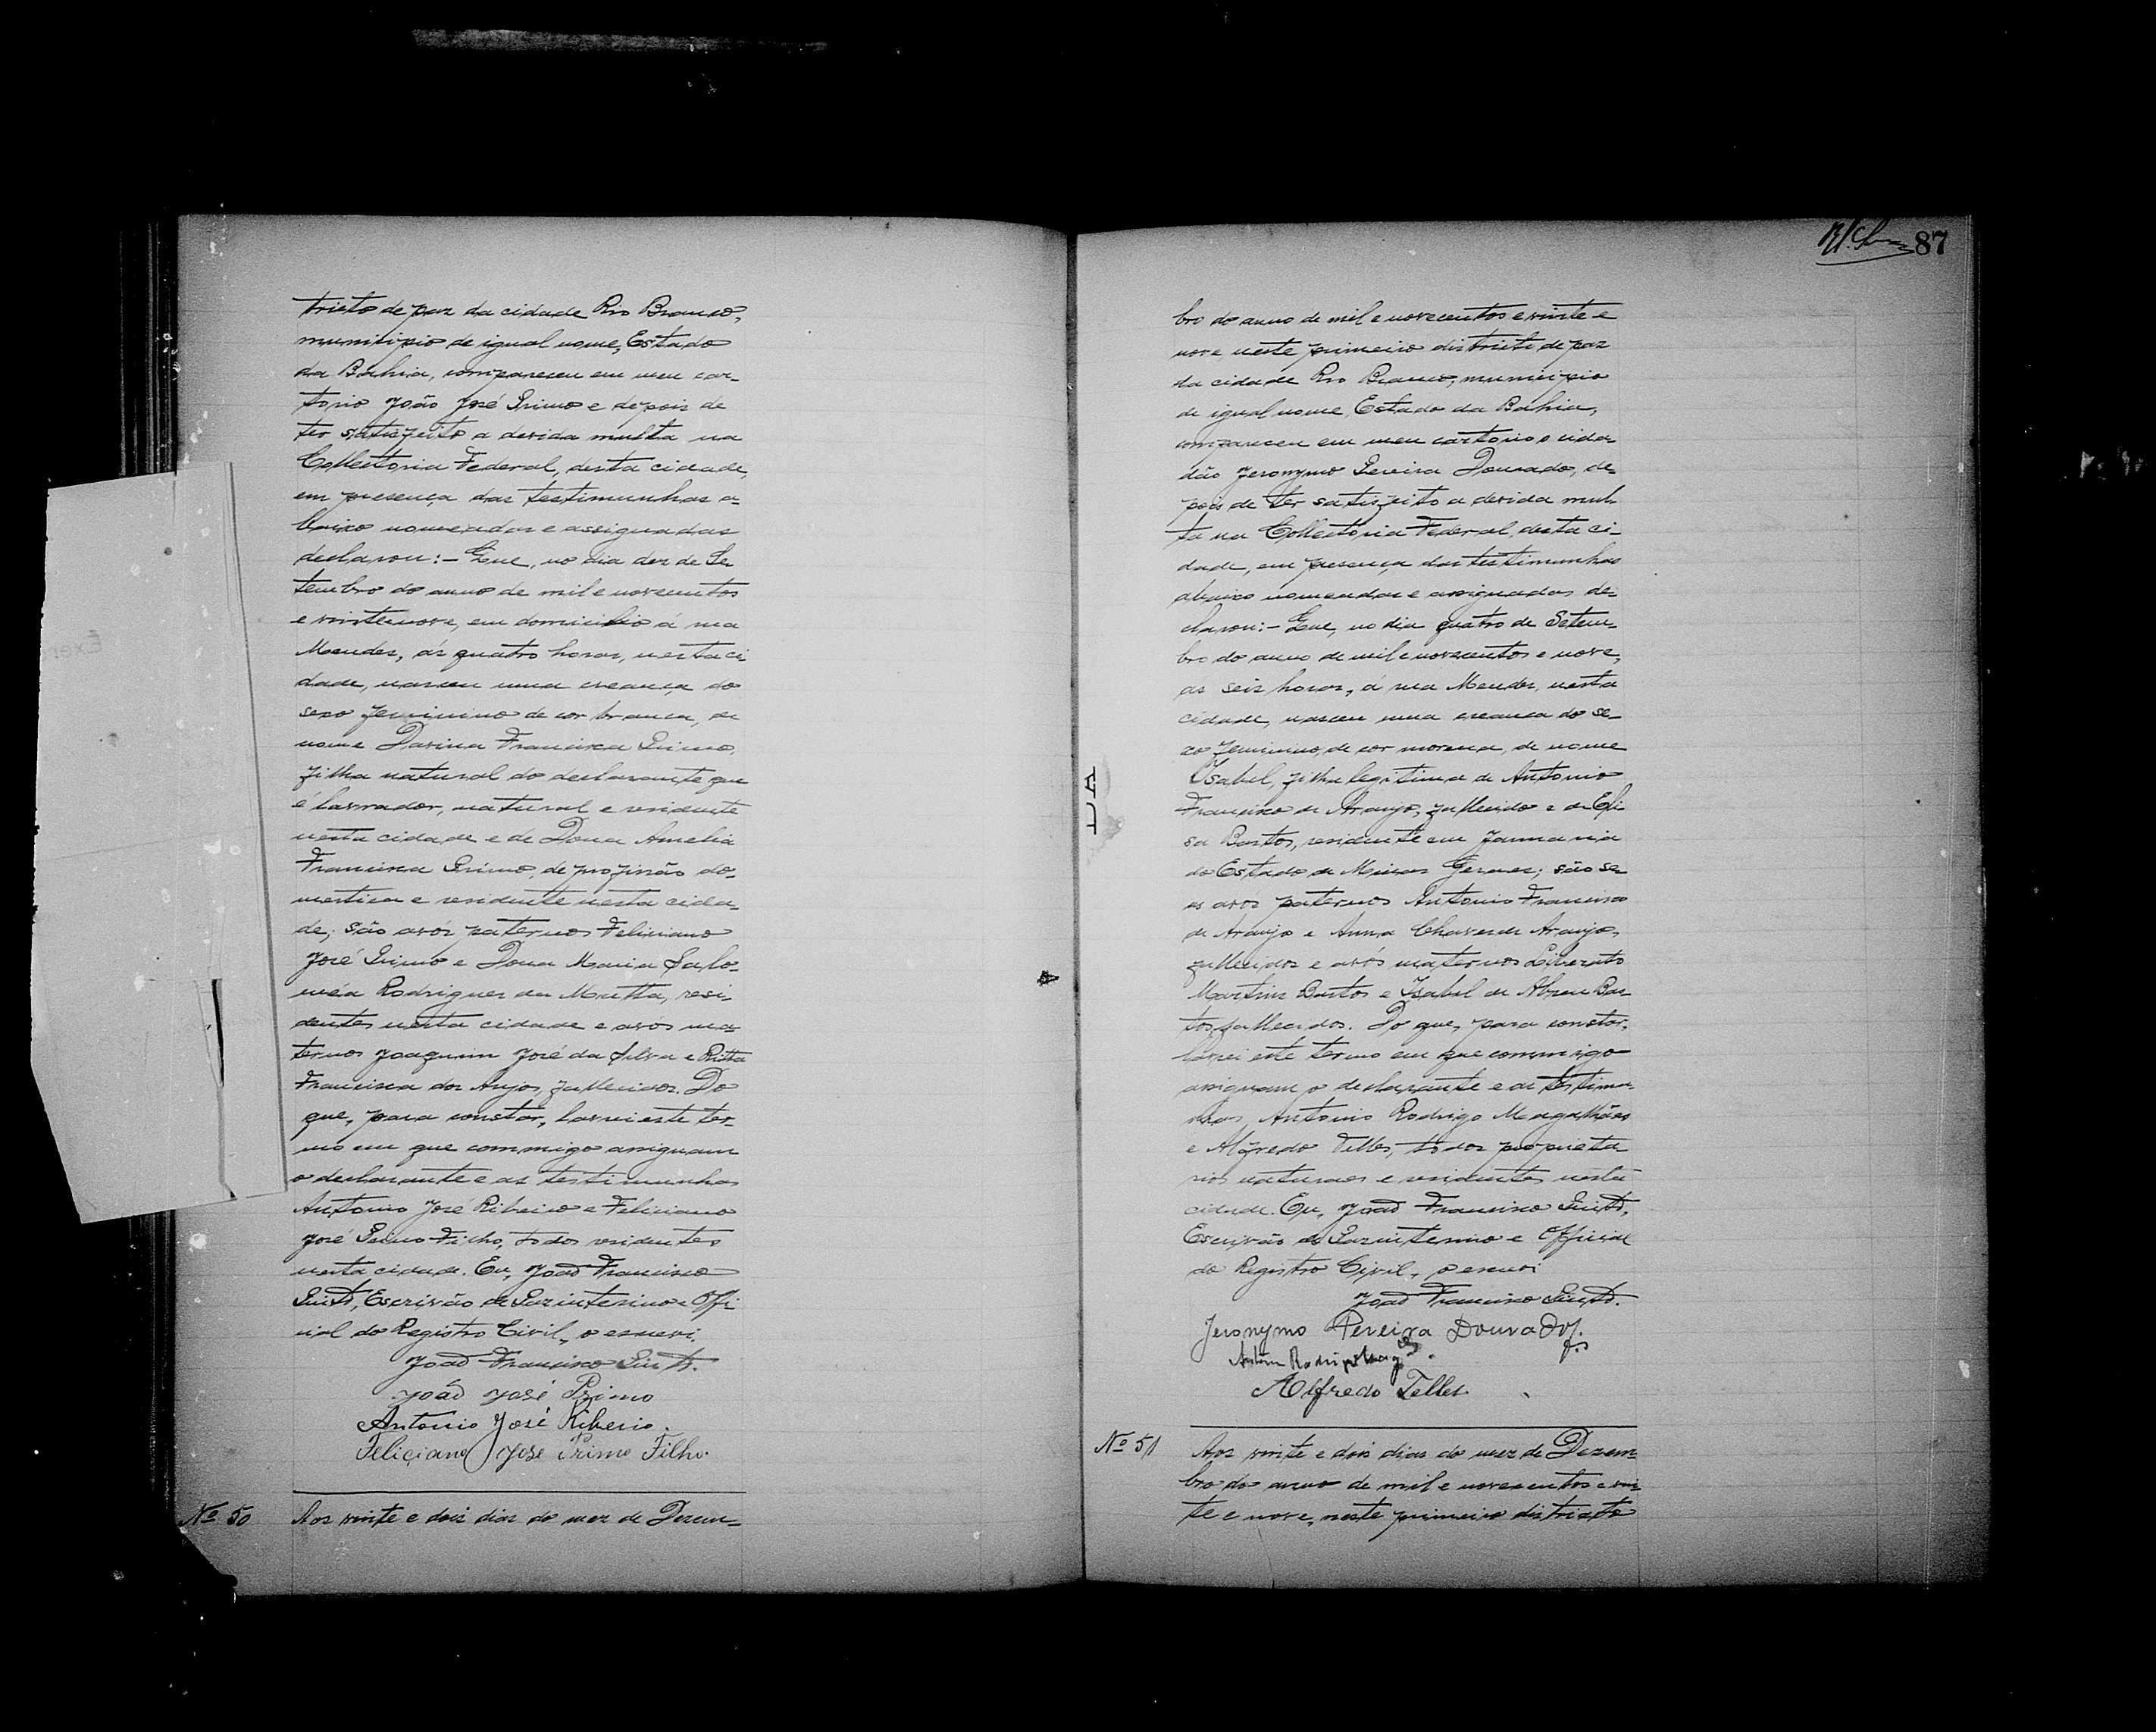 tricto de paz da cidade Rio Branco,
municipio de igual nome, Estado
da Bahia, compareceu em meu car-
torio João José Primo e depois de
ter satisfeito a devida multa na
Collectoria Federal, desta cidade,
em presença das testimunhas a-
baixo nomeadas e assignadas
declarou:- Que, no dia dez de Se-
tembro do anno de mil e novecentos
e vinte nove, em domicilio á rua
Mendes, ás quatro horas, nesta ci
dade, nasceu uma creança do
sexo feminino de cor branca, de
nome Francisca Primo,
filha natural do declarante que
é lavrador, natural e residente
nesta cidade e de Dona Amelia
Francisca Primo, de profissão do-
mestica e residente nesta cida-
de; são avós paternos Feliciano
José Primo e Dona Maria Salo-
méa Rodrigues da Motta, resi-
dentes nesta cidade e avós ma-
ternos Joaquim José da Silva e Ritta
Francisca dos Anjos, fallecidos. Do
que, para constar, lavrei este ter-
mo em que commigo assignam
o declarante e as testimunhas
Antonio José Ribeiro e Feliciano
José Primo Filho, todos residentes
nesta cidade. Eu, João Francisco
Escrivão de Paz interino e Offi
cial do Registro Civil, o escrevi.
João Francisco
João José Primo
Antonio José Ribeiro.
Feliciano José Primo Filho.
Nº 50 Aos vinte e dois dias do mez de Dezem-
87
bro do anno de mil e novecentos e vinte e
nove, neste primeiro districto de paz
da cidade Rio Branco, municipio
de igual nome, Estado da Bahia,
compareceu em meu cartorio o cida-
dão Jeronymo Pereira Dourado, de-
pois de ter satisfeito a devida mul-
ta na Collectoria Federal, desta ci-
dade, em presença das testimunhas
abaixo nomeadas e assignadas de-
clarou:- Que, no dia quatro de Setem-
bro do anno de mil e novecentos e nove,
as seis horas, á rua Mendes, nesta
cidade, nasceu uma creança do se-
xo feminino, de cor morena, de nome
Isabel, filha legitima de Antonio
Francisco de Araujo, fallecido e de Eli
sa Bastos, residente em Januaria
do Estado de Minas Geraes; são se-
us avós paternos Antonio Francisco
de Araujo e Anna Chaves de Araujo,
fallecidos e avós maternos Liberato
Martins Bastos e Isabel de Abreu Bas-
tos, fallecidos. Do que, para constar,
lavrei este termo em que commigo
assignam o declarante e as testimu-
nhas, Antonio Rodrigo Magalhães
e Alfredo Telles, todos proprieta
rios naturaes e residentes nesta
cidade. Eu, João Francisco
Escrivão de Paz interino e Official
do Registro Civil, o escrevi
João Francisco
Jeronymo Pereira Dourado
Alfredo Telles.
Nº 51 Aos vinte e dois dias do mez de Dezem-
bro do anno de mil e novecentos e vin-
te e nove, neste primeiro districto